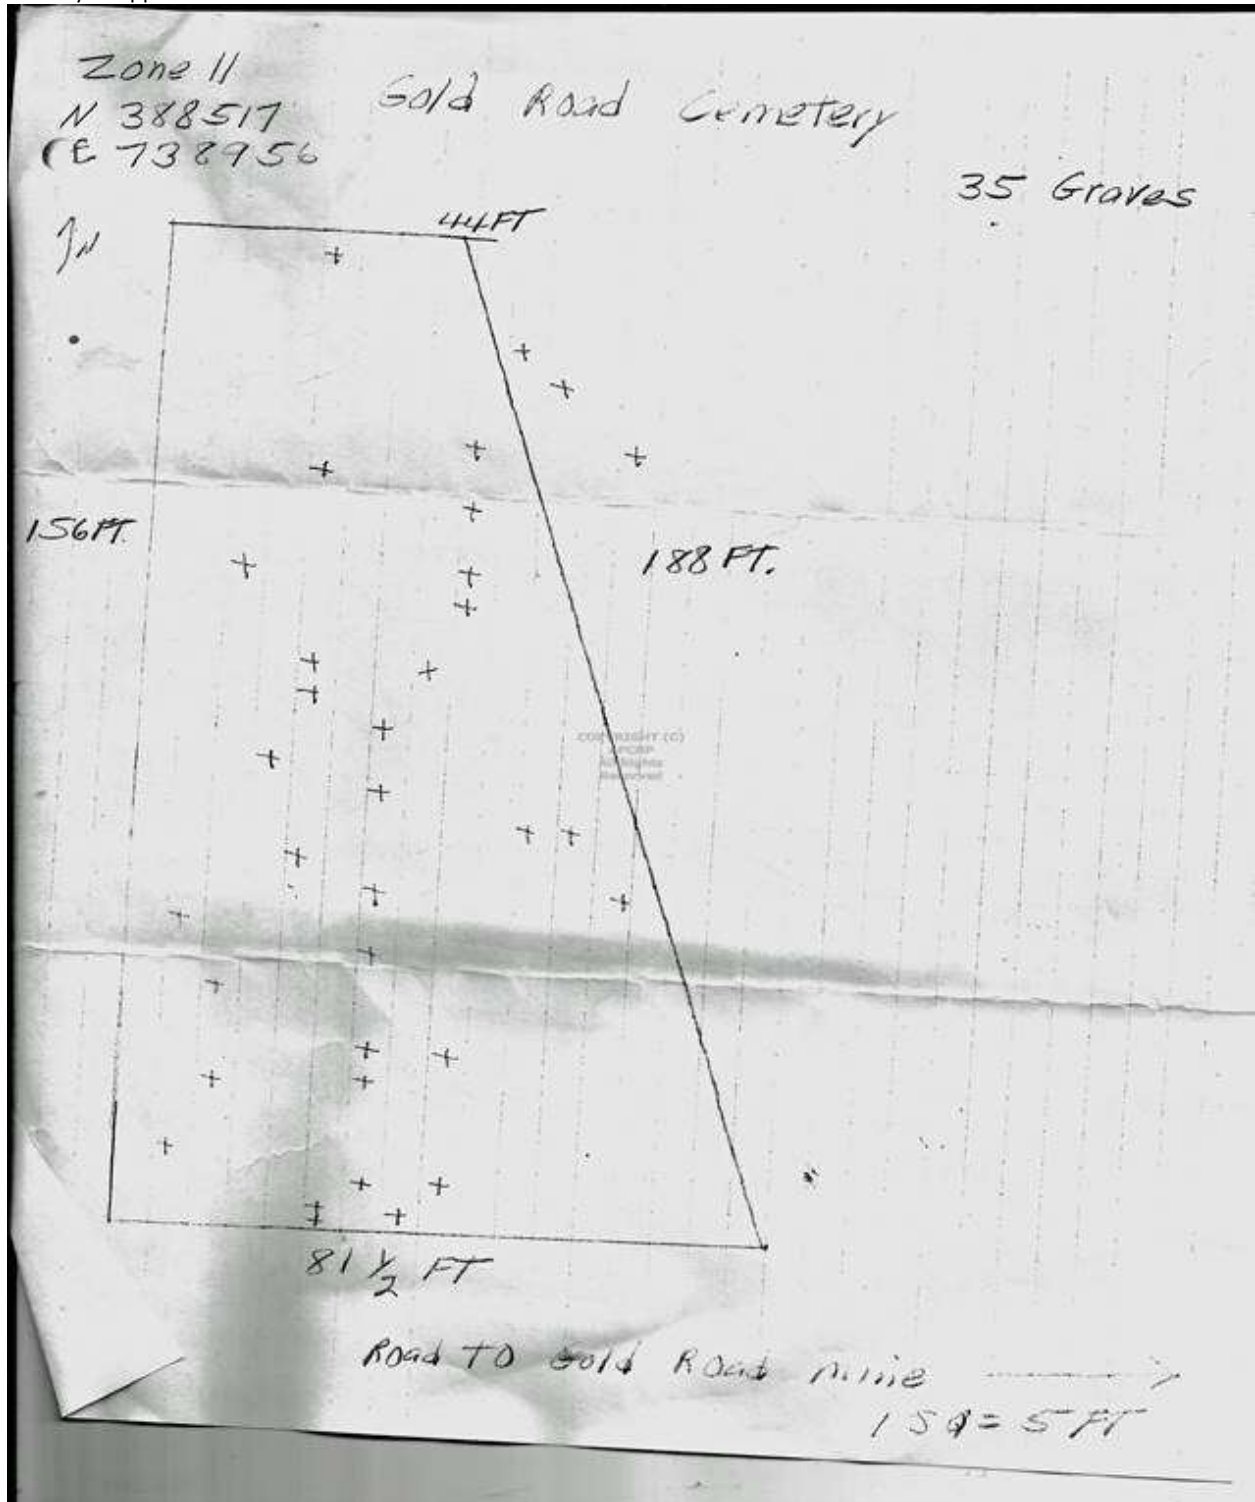 Zone 11
N 388517
E 738956
Gold Road Cemetery
35 Graves
N
44 FT
156 FT.
188 FT.
COPYRIGHT (C)
APCRP
All Rights
Reserved
81 1/2 FT
Road TO Gold Road mine
1 SQ = 5 FT